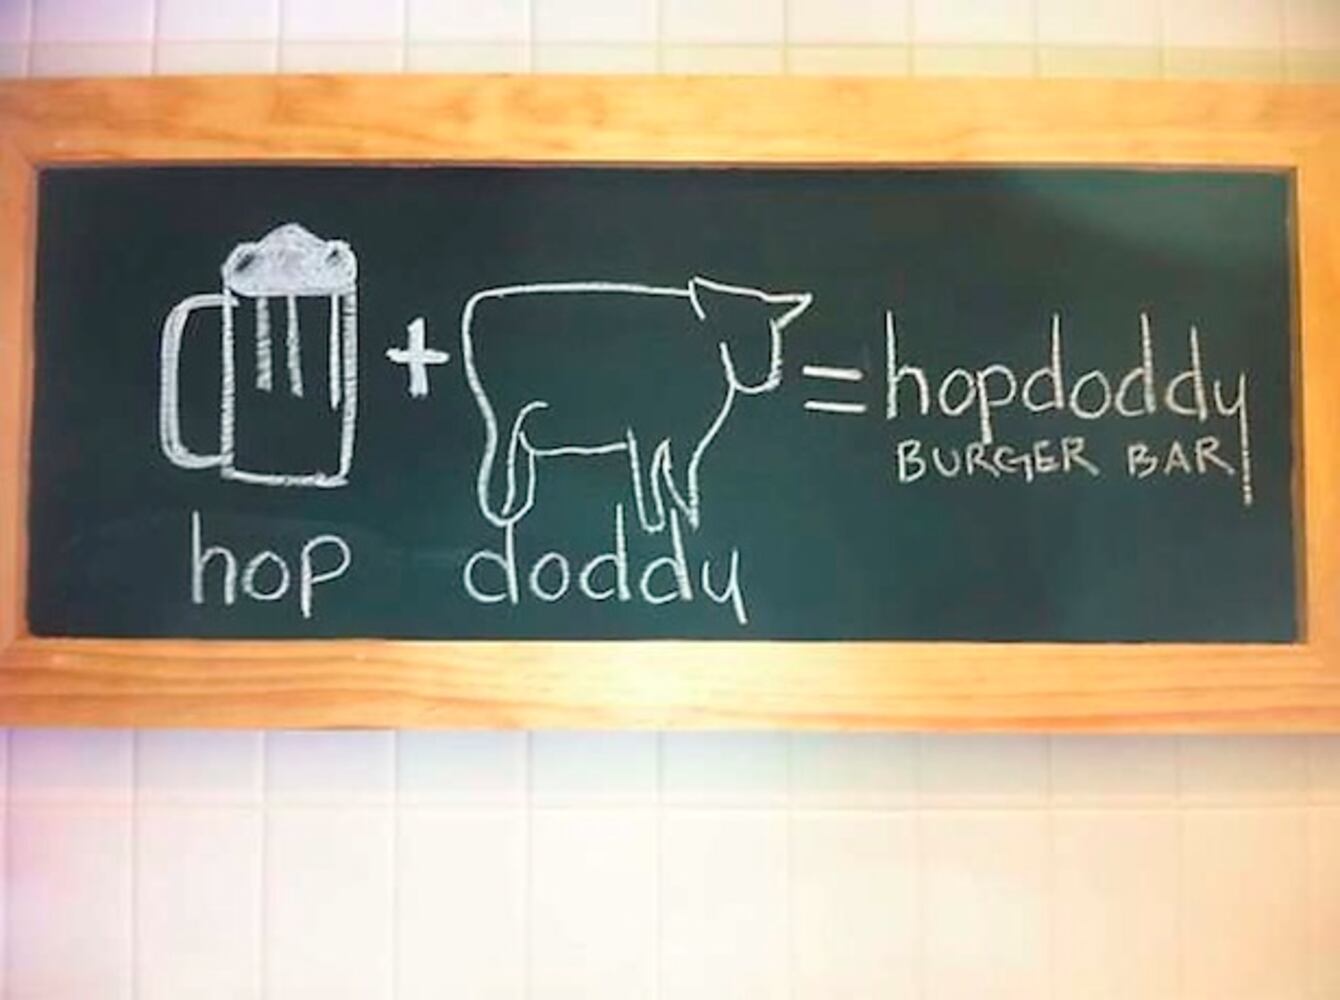 +
= hopdoddy
BURGER BAR
hop doddy